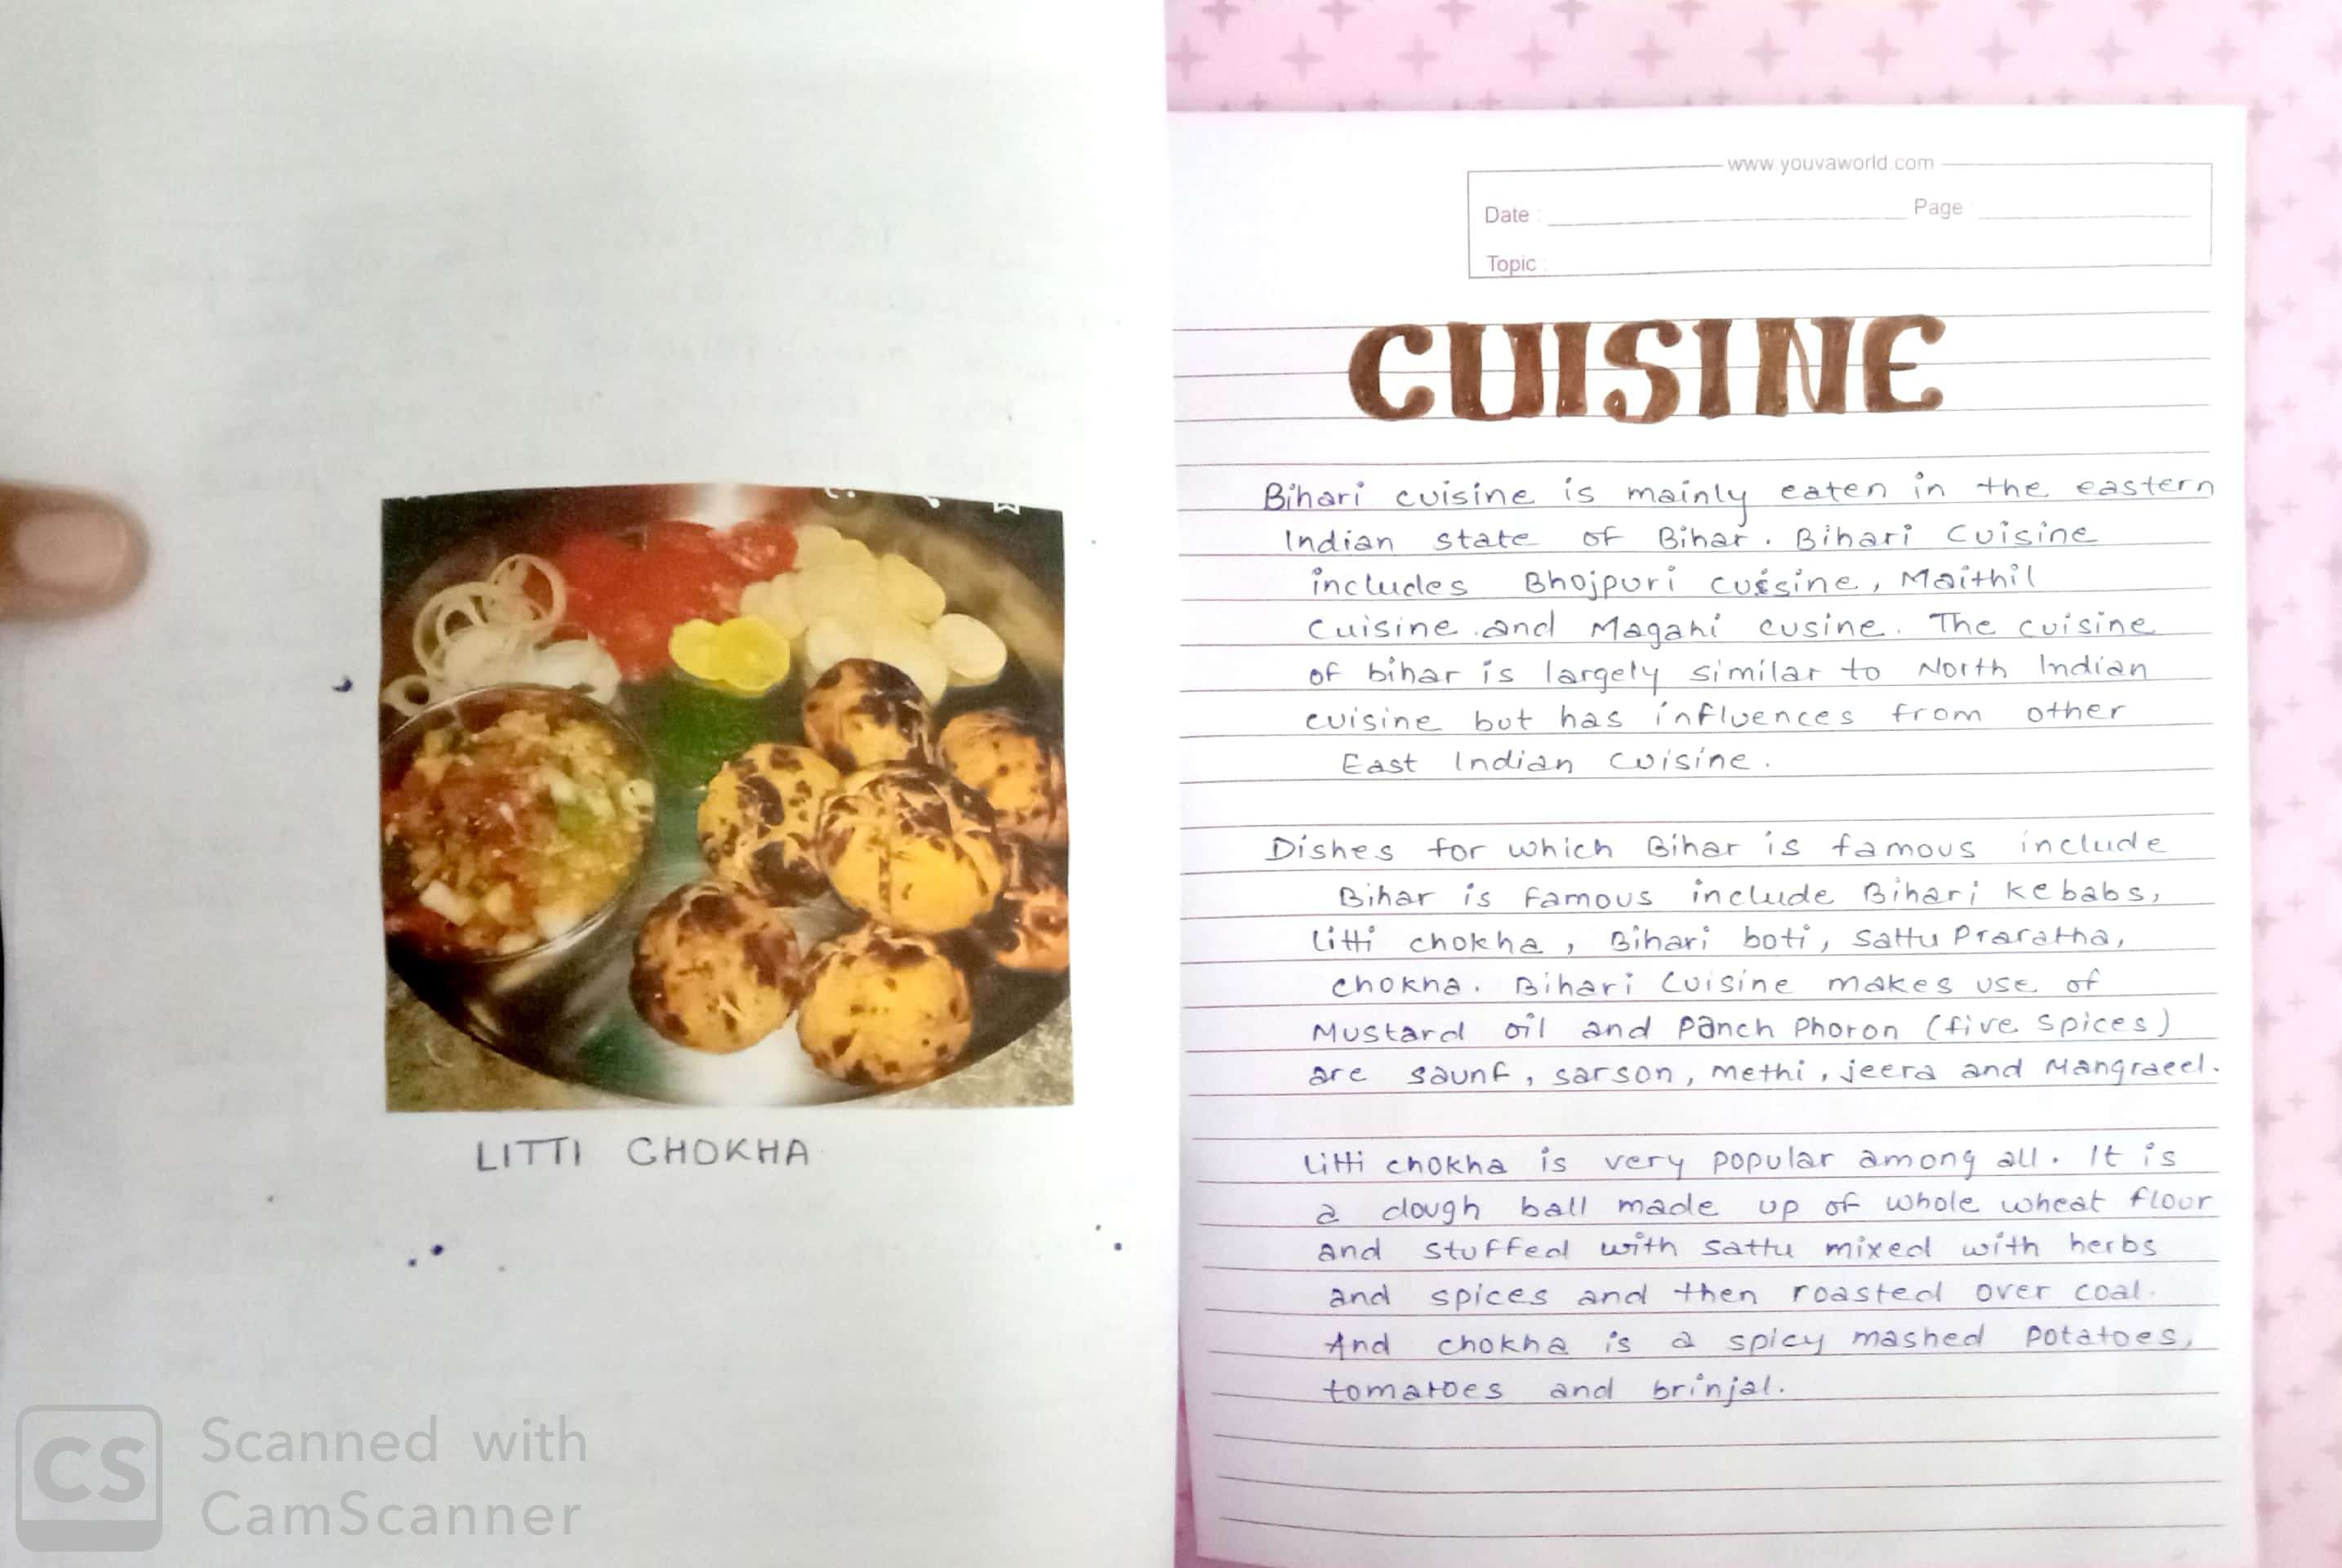 LITTI CHOKHA
Scanned with
CamScanner
CS
www.youvaworld.com
Date : Page :
Topic :
CUISINE
Bihari cuisine is mainly eaten in the eastern
Indian state of Bihar. Bihari Cuisine
includes Bhojpuri cuisine, Maithil
Cuisine and Magahi cusine. The cuisine
of bihar is largely similar to North Indian
cuisine but has influences from other
East Indian Cuisine.
Dishes for which Bihar is famous include
Bihar is famous include Bihari kebabs,
Litti chokha, Bihari boti, Sattu Praratha,
chokha. Bihari Cuisine makes use of
Mustard oil and Panch Phoron (five spices)
are saunf, sarson, methi, jeera and Mangraeel.
Litti chokha is very popular among all. It is
a dough ball made up of whole wheat flour
and stuffed with sattu mixed with herbs
and spices and then roasted over coal.
And chokha is a spicy mashed potatoes,
tomatoes and brinjal.